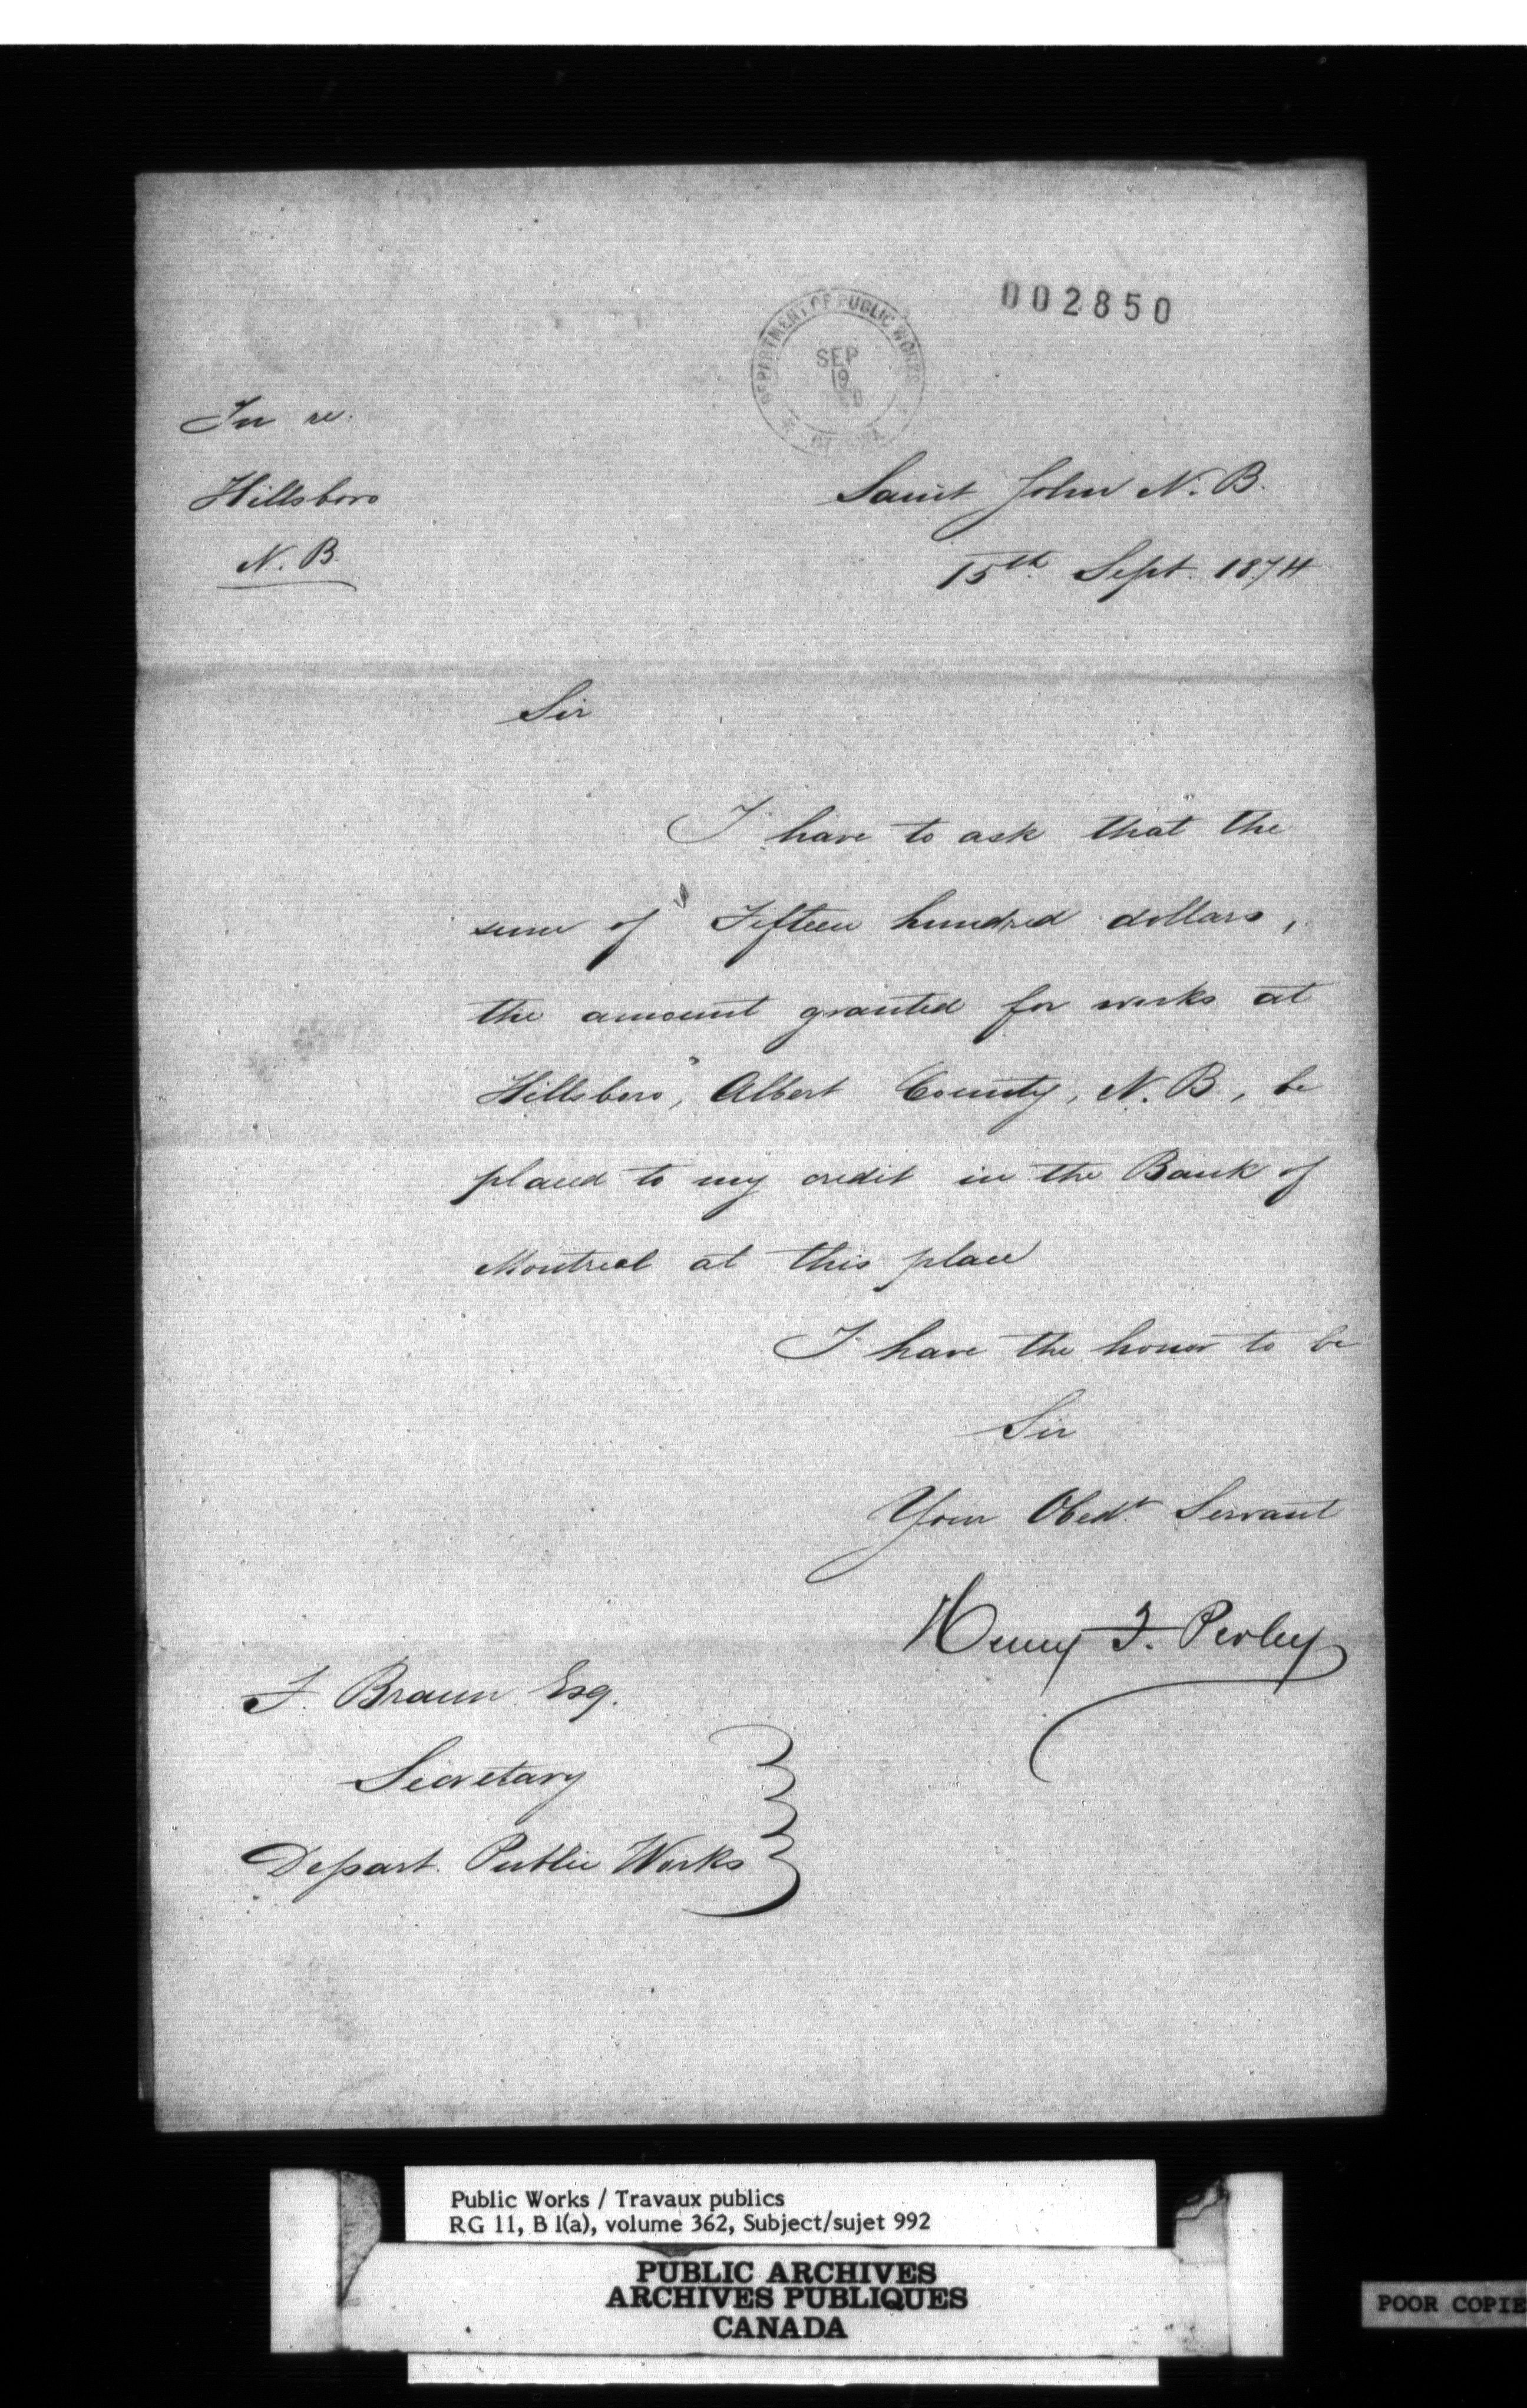 002850
DEPARTMENT OF PUBLIC WORKS
SEP
19
In re.
Hillsboro
N. B.
Saint John N. B.
15th Sept. 1874
Sir
I have to ask that the
sum of "Fifteen hundred dollars,
the amount granted for works at
Hillsboro", Albert County, N. B, be
placed to my credit in the Bank of
Montreal at this place
I have the honor to be
Sir
Your Obedt Servant
Henry F. Perley
F. Braun Esq.
Secretary
Depart. Public Works
Public Works / Travaux publics
RG 11, B 1(a), volume 362, Subject/sujet 992
PUBLIC ARCHIVES
ARCHIVES PUBLIQUES
CANADA
POOR COPIE